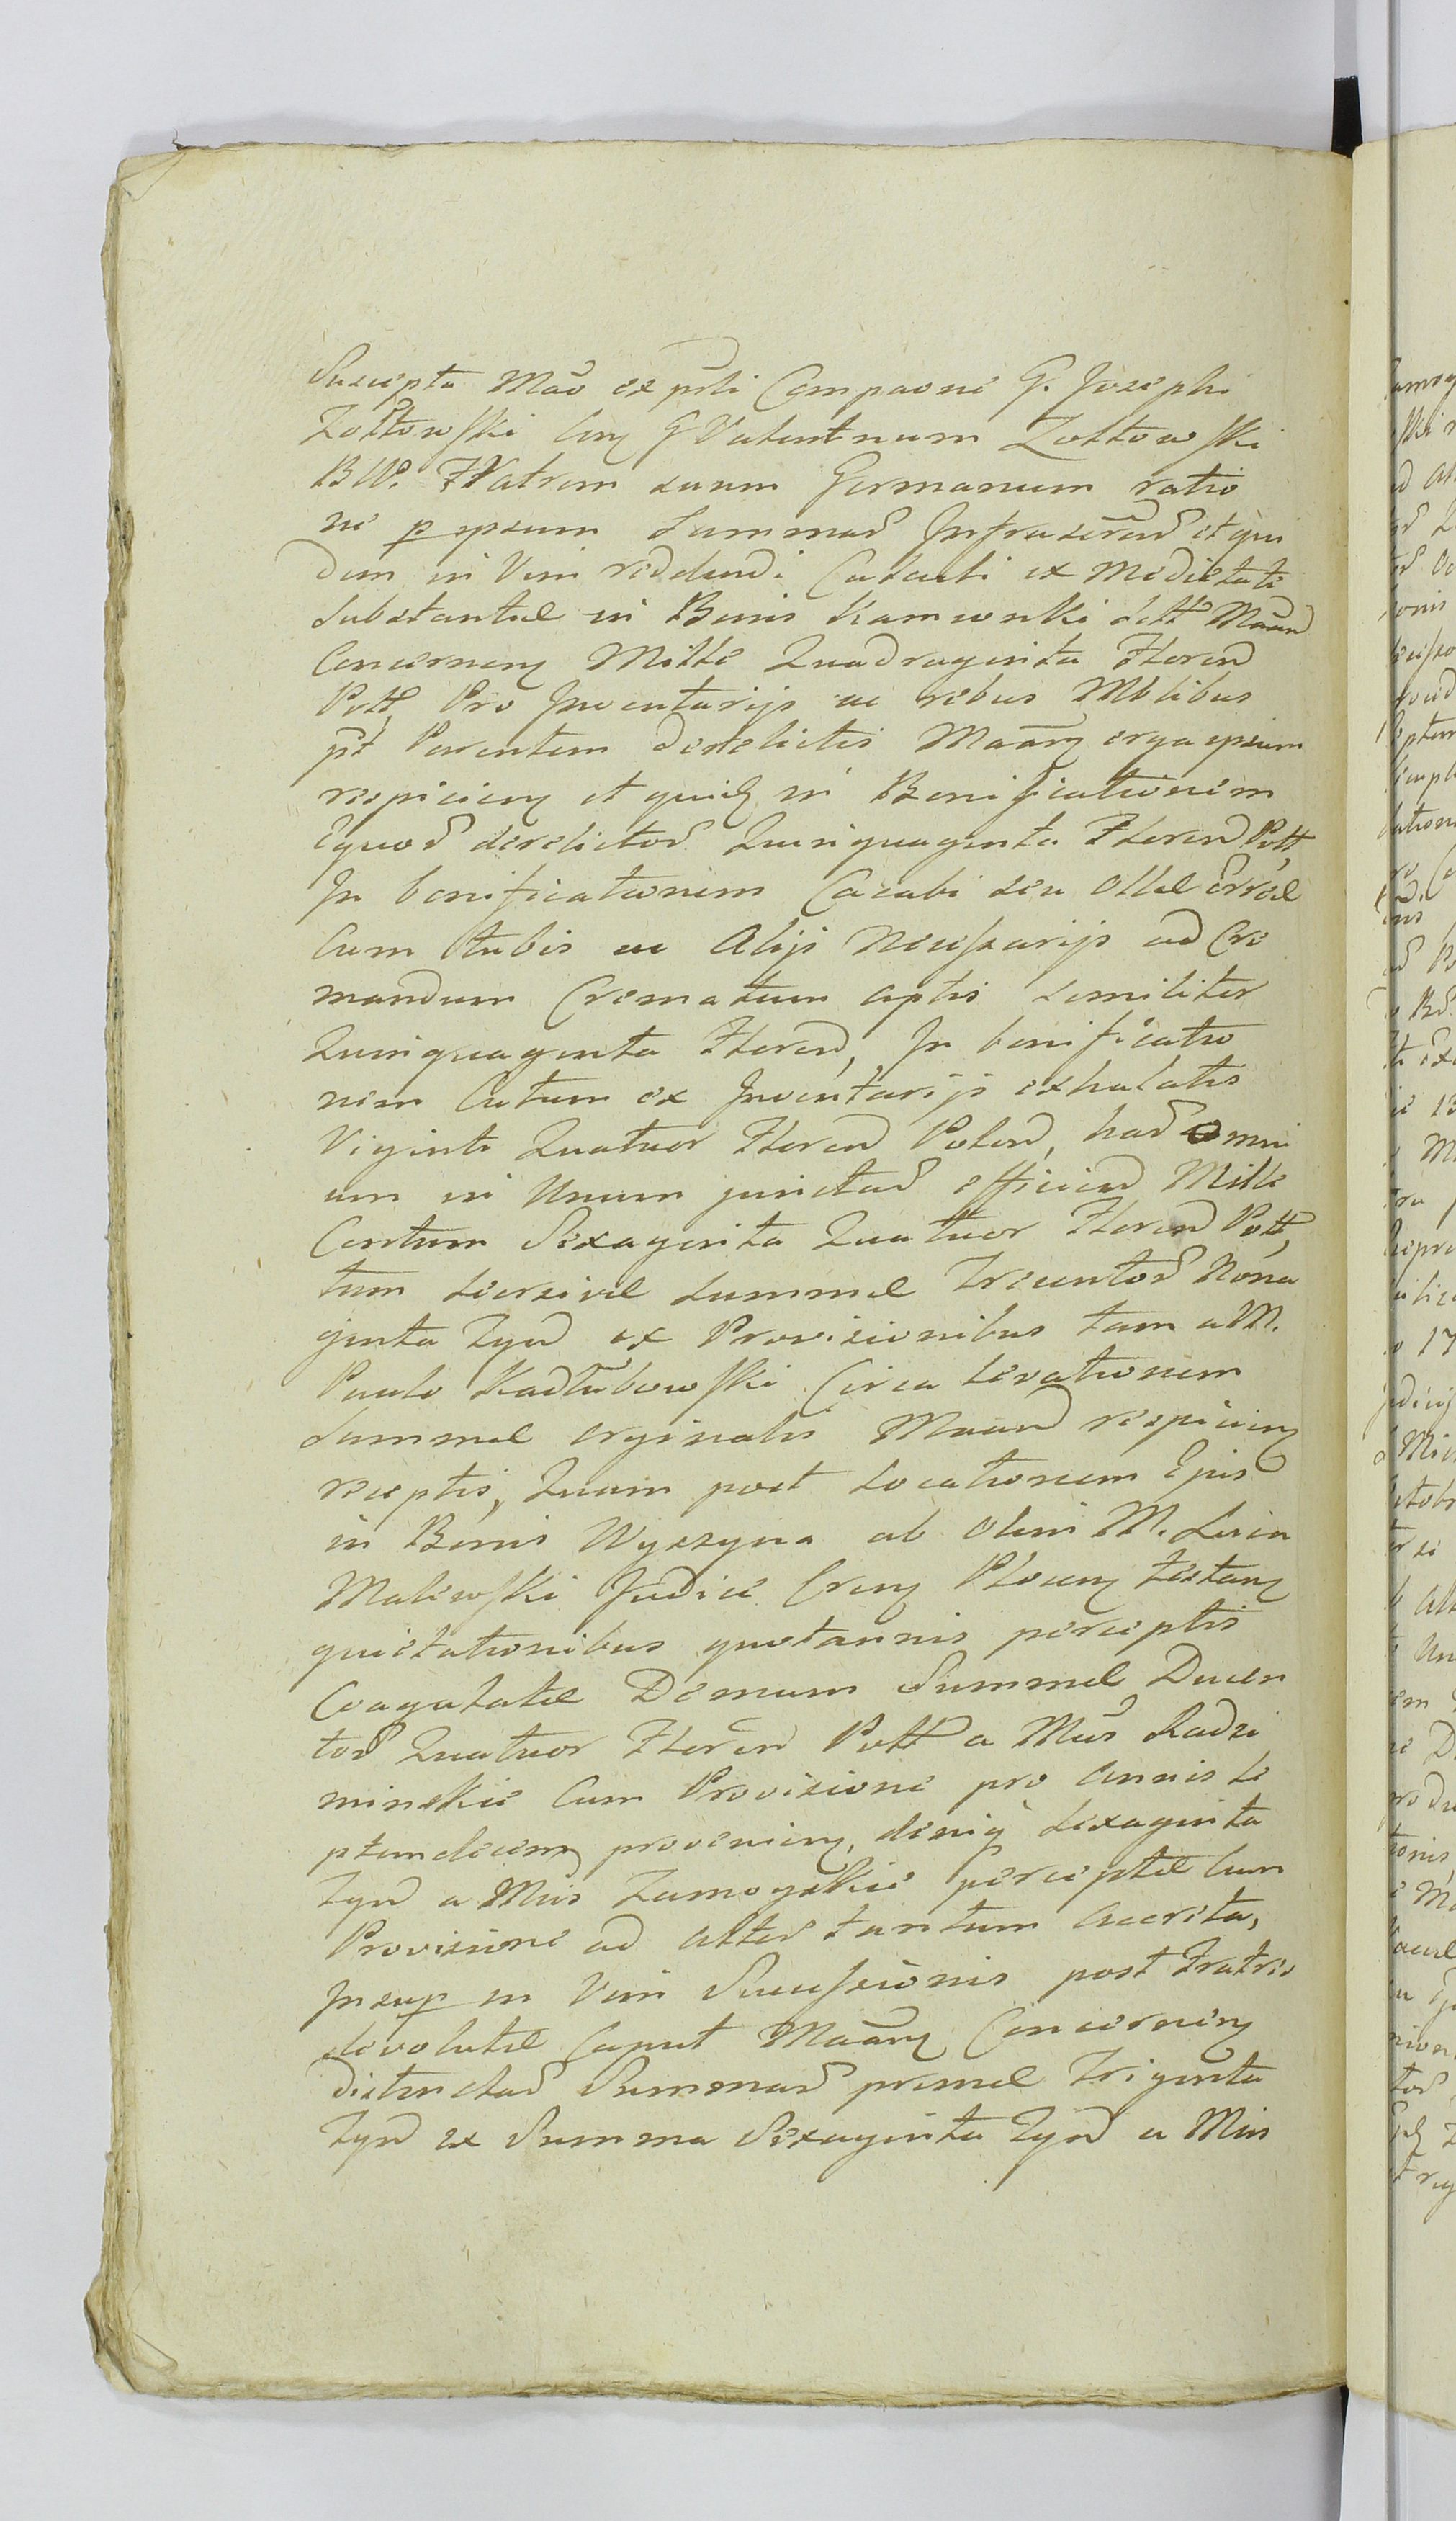 Suscepta Mão ex pñti Compaone G. Josephi
Zołtowski Cum G Valentinum Zołtowski
B W. Fratrem suum Germanum ratio
ne p ipsum Summar Infrascrar et qui
dem in Vim reddendi Calculi ex Medietate
Substantiæ in Bonis Kamionki
Concernen Mille Quadraginta Floren
Poll, Pro Inventarijs ac rebus Mblibus
pt Parentem derelictis Maam erga ipsum
respicien et quid in Bonificationem
Equor derelictor Quinquaginta Floren Poll,
In bonificationem Cacabi seu Ollæ
Cum tubis ac Alijs Necessarijs ad Cre
mandum Crematum aptis similiter
Quinquaginta Floren, In bonificatio
nem Cutum ex Inventarijs exhalatis
Viginti Quatuor Floren Polon, har Omni
um in Unum junctar efficien Mille
Centum Sexaginta Quatuor Floren Poll,
tum diversivæ Summæ Trecentor Nona
ginta Tyn ex Provisionibus tam a M.
Paulo Kadłubowski Circa levationem
Summæ orginalis Maam respicien
receptis, Quam post Locationem Ejus
in Bonis Wyszyna ab olim M. Luca
Malewski Judice Cren Plocen
quietationibus quotannis perceptis
Coagulatæ Demum Summæ Ducen
tor Quatuor Floren Poll a Mcis Radzi
minskie Cum Provisione pro Annis Se
ptemdecem provenien, deniq Sexaginta
Tyn a Mcis Zamoyskie perceptæ Cum
Provisione ad alter tantum Accreta,
Insup in Vim Successionis post Fratris
devolutæ Caput Maam Concernen
distinctar Summar primæ Triginta
Tyn ex Summa Sexaginta Tyn a Mcis